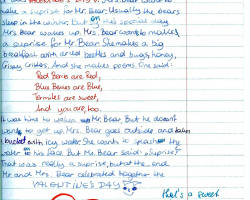 VALENTINE'S DAY. Mrs. Bear want to
make a suprise for Mr. Bear. Usually the bears
sleep in the winter, but on this special day
Mrs. Bear wakes up. Mrs. Bear wants to makes
a surprise for Mr. Bear. She makes a big
breakfast with dried beetles and bugs, honey,
Crispy Crikes. And she makes poems. One said:
Red Bears are Red,
Blue Bears are Blue,
Termites are sweet,
And you are, too.
It was time to wake Mr. Bear. But he doesn't
want to get up. Mrs. Bear goes outside and
touched icy water. She wants to splash the
water on his face. But Mr. Bear said: "Suprise!"
That was really a surprise, but at the end
Mr. and Mrs. Bear celebrated together the
VALENTINE'S DAY
that's a sweet